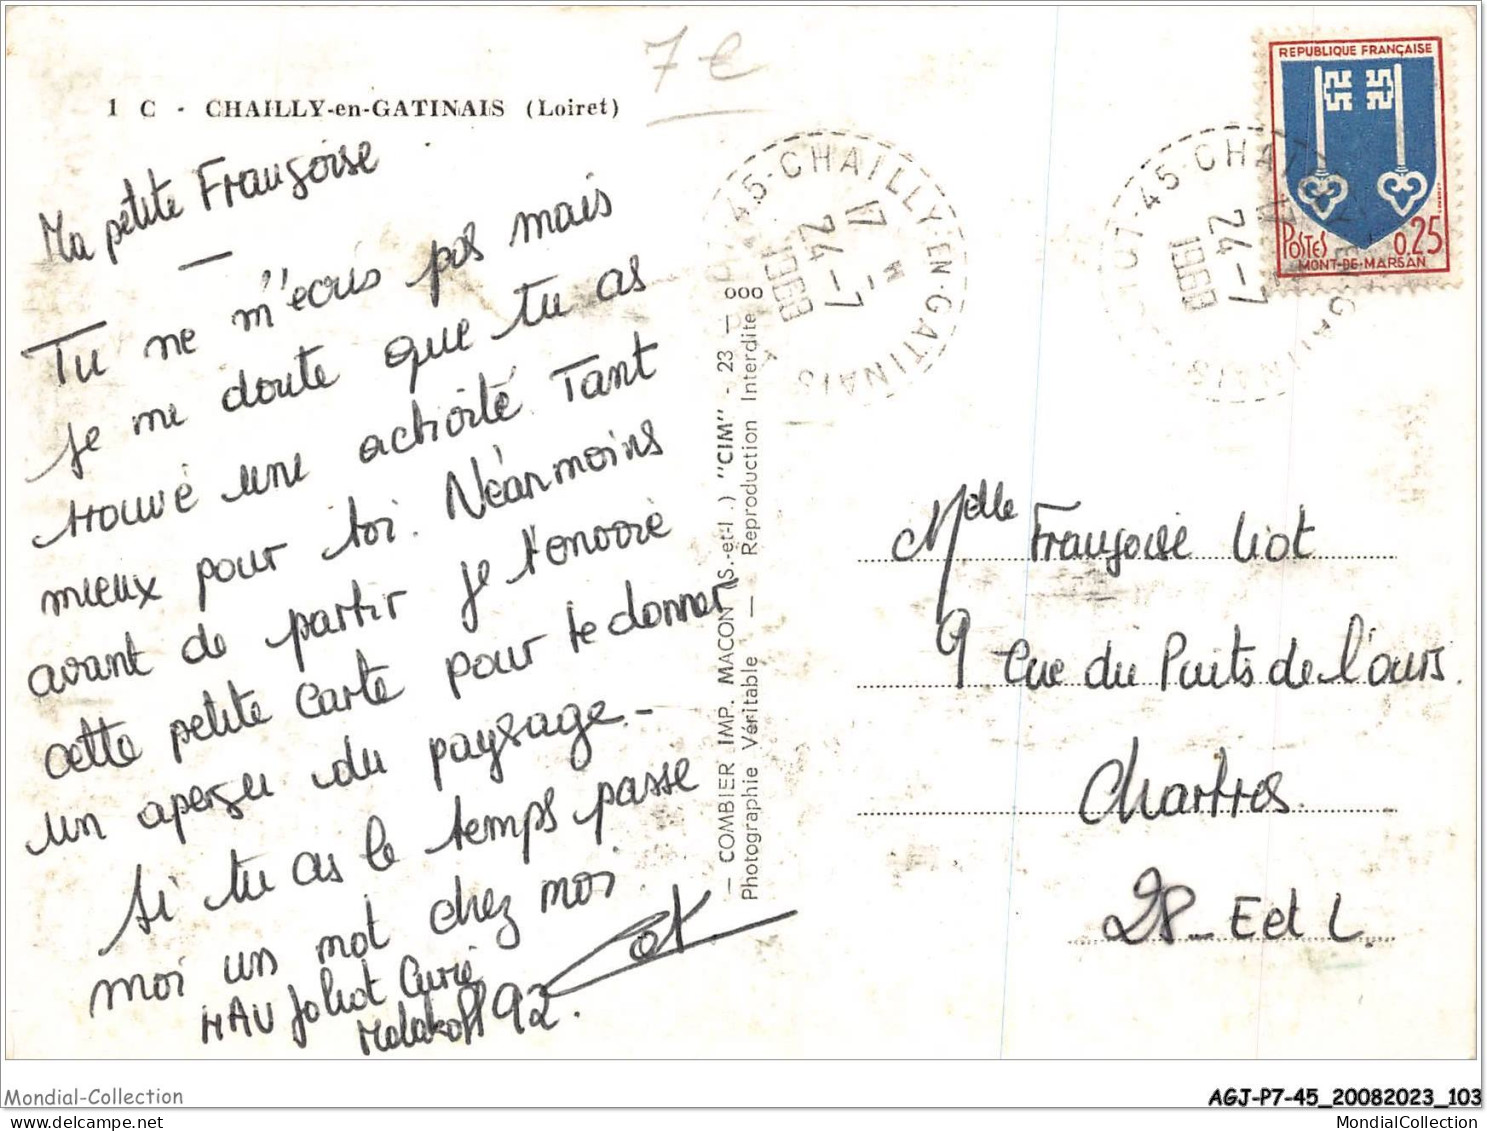 7 €
1 C - CHAILLY-en-GATINAIS (Loiret)
Ma petite Françoise
—
Tu ne m'écris pas mais
je me doute que tu as
trouvé une activité. Tant
mieux pour toi. Néanmoins
avant de partir je t'envoie
cette petite carte pour te donner
un aperçu du paysage -
Si tu as le temps passe
moi un mot chez moi.
Joliot Curie
Malakoff 92.
— COMBIER IMP. MACON (S.-et-L.) "CIM" - 23
Photographie Véritable — Reproduction Interdite
45-CHAILLY-EN-GATINAIS
17 H
24-7
1968
45-CHAILLY-EN-GATINAIS
17
24-7
1968
REPUBLIQUE FRANÇAISE
POSTES 0,25
MONT-DE-MARSAN
Melle Françoise Liot
9 rue du Puits de l'ours.
Chartres.
28 - E et L.
Mondial-Collection
AGJ-P7-45_20082023_103
MondialCollection